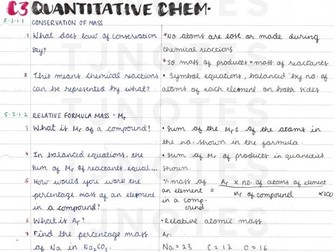 C3 QUANTITATIVE CHEM.
5.3.1.1
CONSERVATION OF MASS
1 What does law of conservation say?
• No atoms are lost or made during chemical reactions
• So mass of products = mass of reactants
2 This means chemical reactions can be represented by what?
• Symbol equations, balanced by no. of atoms of each element on both sides
5.3.1.2
RELATIVE FORMULA MASS - Mr
3 What is Mr of a compound?
• Sum of the Mrs of the atoms in the no. shown in the formula
4 In balanced equations, the sum of Mr of reactants equal...
• Sum of Mr of products in quantities shown
5 How would you work the percentage mass of an element in a compound?
% mass of an element in a compound = Ar × no. of atoms of element
Mr of compound ×100
6 What is Ar?
• Relative atomic mass
7 Find the percentage mass of Na in Na2CO3.
Ar:
Na = 23 C = 12 O = 16
TJNOTES
TJNOTES